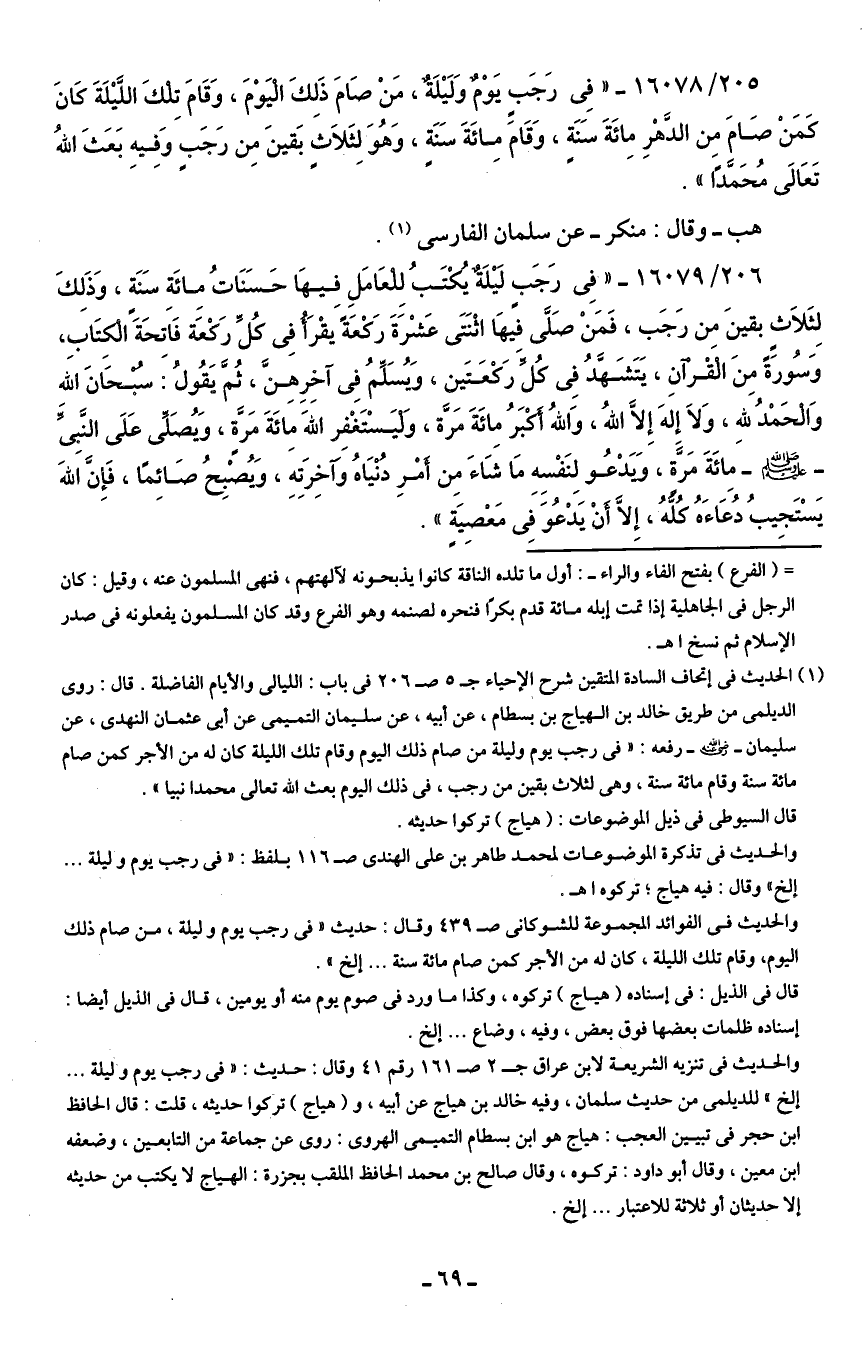 ١٦٠٧٨/٢٠٥ ـ « فِى رَجَبٍ يَوْمٌ وَلَيْلَةٌ ، مَنْ صَامَ ذَلِكَ الْيَوْمَ ، وَقَامَ تِلْكَ اللَّيْلَةَ كَانَ
كَمَنْ صَامَ مِن الدَّهْرِ مِائَةَ سَنَةٍ ، وَقَامَ مِائَةَ سَنَةٍ ، وَهُوَ لِثَلَاثٍ بَقِينَ مِن رَجَبٍ وَفِيهِ بَعَثَ اللهُ
تَعَالَى مُحَمَّدًا » .
هب ـ وقال : منكر ـ عن سلمان الفارسى (١) .
١٦٠٧٩/٢٠٦ ـ « فِى رَجَبٍ لَيْلَةٌ يُكْتَبُ لِلْعَامِلِ فِيهَا حَسَنَاتُ مِائَةِ سَنَةٍ ، وَذَلِكَ
لِثَلَاثٍ بقِينَ مِن رَجَب ، فَمَنْ صَلَّى فِيهَا اثْنَتَى عَشْرَةَ رَكْعَةً يقْرَأُ فِى كُلِّ رَكْعَة فَاتِحَةَ الْكِتَابِ،
وَسُورَةً مِنَ الْقُرْآنِ ، يَتَشَهَّدُ فِى كُلِّ رَكْعَتَينِ ، وَيُسَلِّمُ فِى آخِرِهِنَّ ، ثُمَّ يَقُولُ : سُبْحَانَ الله
وَالْحَمْدُ للهِ ، وَلاَ إِلهَ إِلاَّ اللهُ ، وَاللهُ أَكْبَرُ مِائَةَ مَرَّة ، وَلْيَسْتَغْفِرِ اللهَ مِائَةَ مَرَّةٍ ، وَيُصَلِّى عَلَى النَّبِىِّ
ـ ﷺ ـ مائَةَ مَرَّة ، وَيَدْعُو لِنَفْسِهِ مَا شَاءَ مِن أَمْرِ دُنْيَاهُ وَآخِرَتِهِ ، وَيُصْبِحُ صَائِمًا ، فَإِنَّ اللهَ
يَسْتَجِيبُ دُعَاءَهُ كُلُّهُ ، إِلاَّ أَنْ يَدْعُوَ فِى مَعْصِيَةٍ » .
= ( الفرع ) بفتح الفاء والراء ـ : أول ما تلده الناقة كانوا يذبحونه لآلهتهم ، فنهى المسلمون عنه ، وقيل : كان
الرجل فى الجاهلية إذا تمت إبله مائة قدم بكرًا فنحره لصنمه وهو الفرع وقد كان المسلمون يفعلونه فى صدر
الإسلام ثم نسخ ا هـ .
(١) الحديث فى إتحاف السادة المتقين شرح الإحياء جـ ٥ صـ ٢٠٦ فى باب : الليالى والأيام الفاضلة . قال : روى
الديلمى من طريق خالد بن الهياج بن بسطام ، عن أبيه ، عن سليمان التميمى عن أبى عثمان النهدى ، عن
سليمان ـ رضي الله عنه ـ رفعه : « فى رجب يوم وليلة من صام ذلك اليوم وقام تلك الليلة كان له من الأجر كمن صام
مائة سنة وقام مائة سنة ، وهى لثلاث بقين من رجب ، فى ذلك اليوم بعث الله تعالى محمدا نبيا » .
قال السيوطى فى ذيل الموضوعات : ( هياج ) تركوا حديثه .
والحديث فى تذكرة الموضوعات لمحمد طاهر بن على الهندى صـ ١١٦ بلفظ : « فى رجب يوم و ليلة ...
إلخ» وقال : فيه هياج ؛ تركوه ا هـ .
والحديث فى الفوائد المجموعة للشوكانى صـ ٤٣٩ وقال : حديث « فى رجب يوم و ليلة ، من صام ذلك
اليوم، وقام تلك الليلة ، كان له من الأجر كمن صام مائة سنة ... إلخ » .
قال فى الذيل : فى إسناده ( هياج ) تركوه ، وكذا ما ورد فى صوم يوم منه أو يومين ، قال فى الذيل أيضا :
إسناده ظلمات بعضها فوق بعض ، وفيه ، وضاع ... إلخ .
والحديث فى تنزيه الشريعة لابن عراق جـ ٢ صـ ١٦١ رقم ٤١ وقال : حديث : « فى رجب يوم و ليلة ...
إلخ » للديلمى من حديث سلمان ، وفيه خالد بن هياج عن أبيه ، و ( هياج ) تركوا حديثه ، قلت : قال الحافظ
ابن حجر فى تبيين العجب : هياج هو ابن بسطام التميمى الهروى : روى عن جماعة من التابعين ، وضعفه
ابن معين ، وقال أبو داود : تركوه ، وقال صالح بن محمد الحافظ الملقب بجزرة : الهياج لا يكتب من حديثه
إلا حديثان أو ثلاثة للاعتبار ... إلخ .
ـ ٦٩ ـ